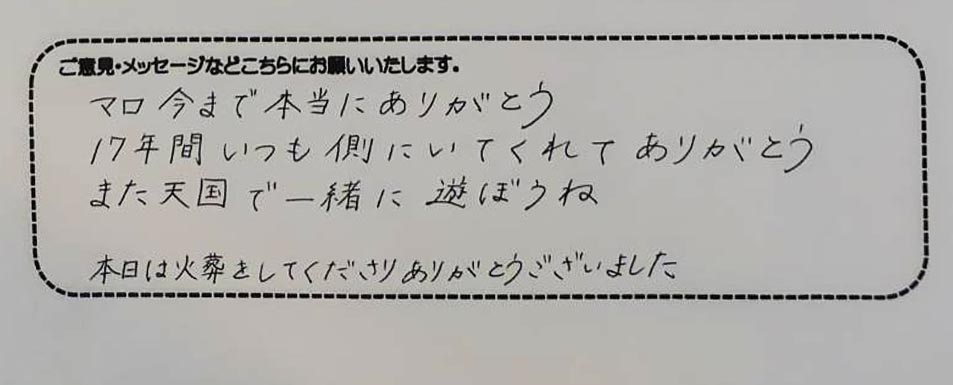 ご意見・メッセージなどこちらにお願いいたします。
マロ 今まで本当にありがとう
17年間いつも側にいてくれてありがとう
また天国で一緒に遊ぼうね
本日は火葬をしてくださりありがとうございました